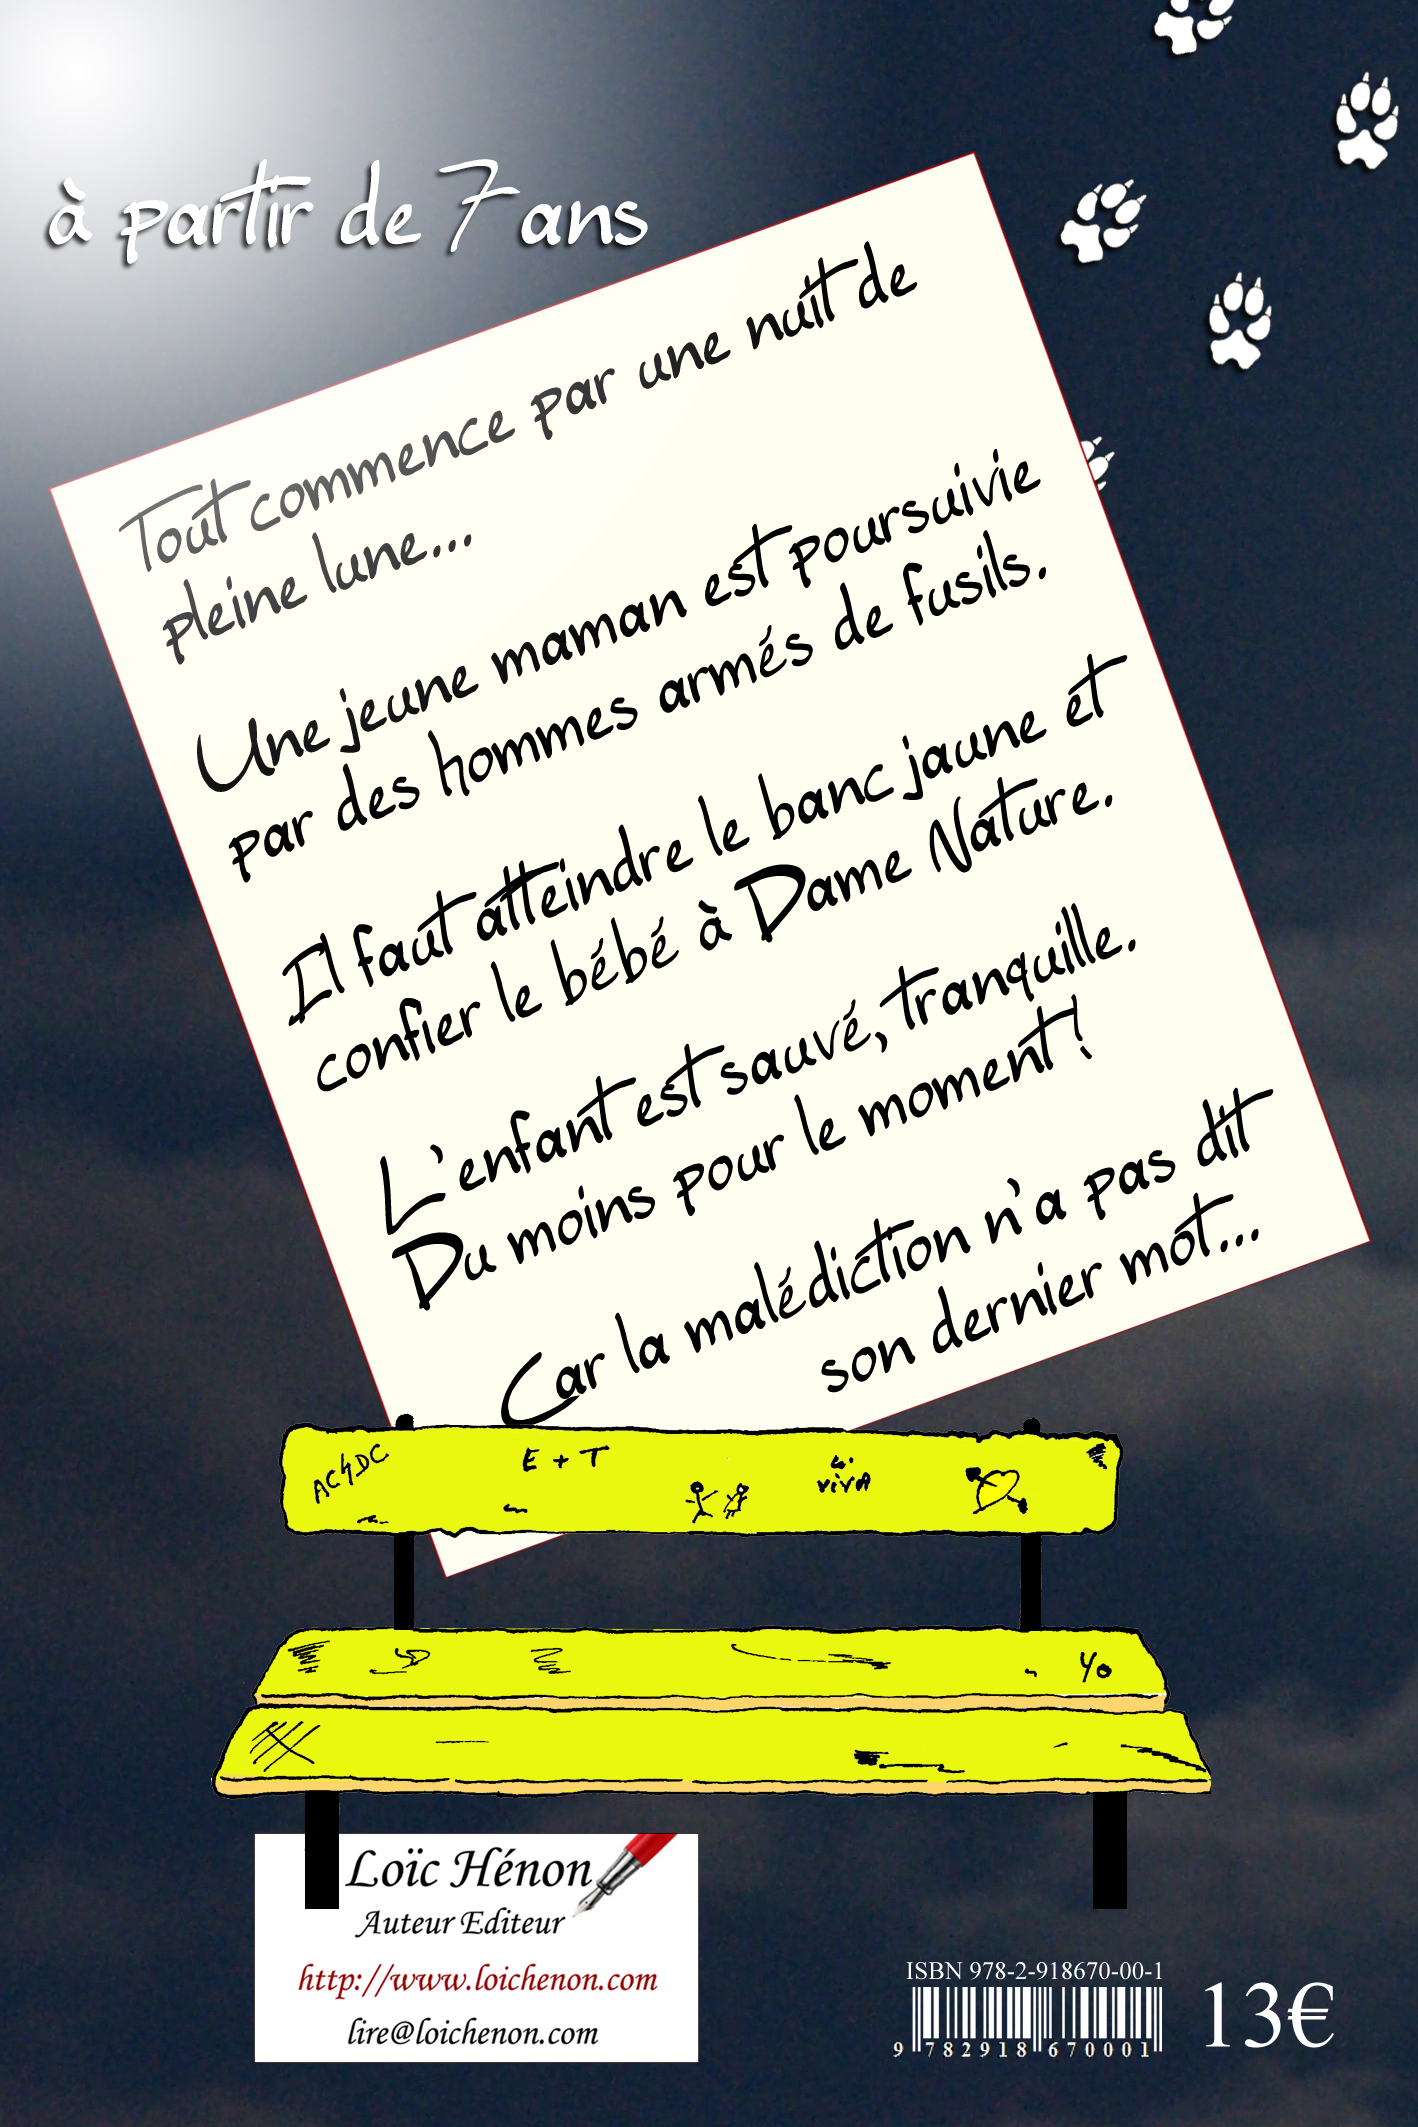 à partir de 7 ans
Tout commence par une nuit de
pleine lune...
Une jeune maman est poursuivie
par des hommes armés de fusils.
Il faut atteindre le banc jaune et
confier le bébé à Dame Nature.
L'enfant est sauvé, tranquille.
Du moins pour le moment !
Car la malédiction n'a pas dit
son dernier mot...
AC⚡DC
E + T
viva
Yo
Loïc Hénon
Auteur Editeur
http://www.loichenon.com
lire@loichenon.com
ISBN 978-2-918670-00-1
9 782918 670001
13€